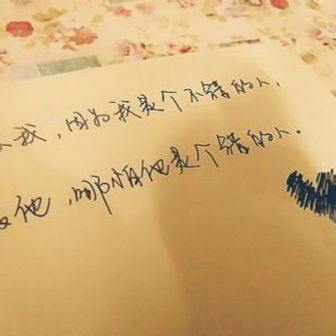 我，因为我是个不错的人，
他，哪怕他是个错的人。